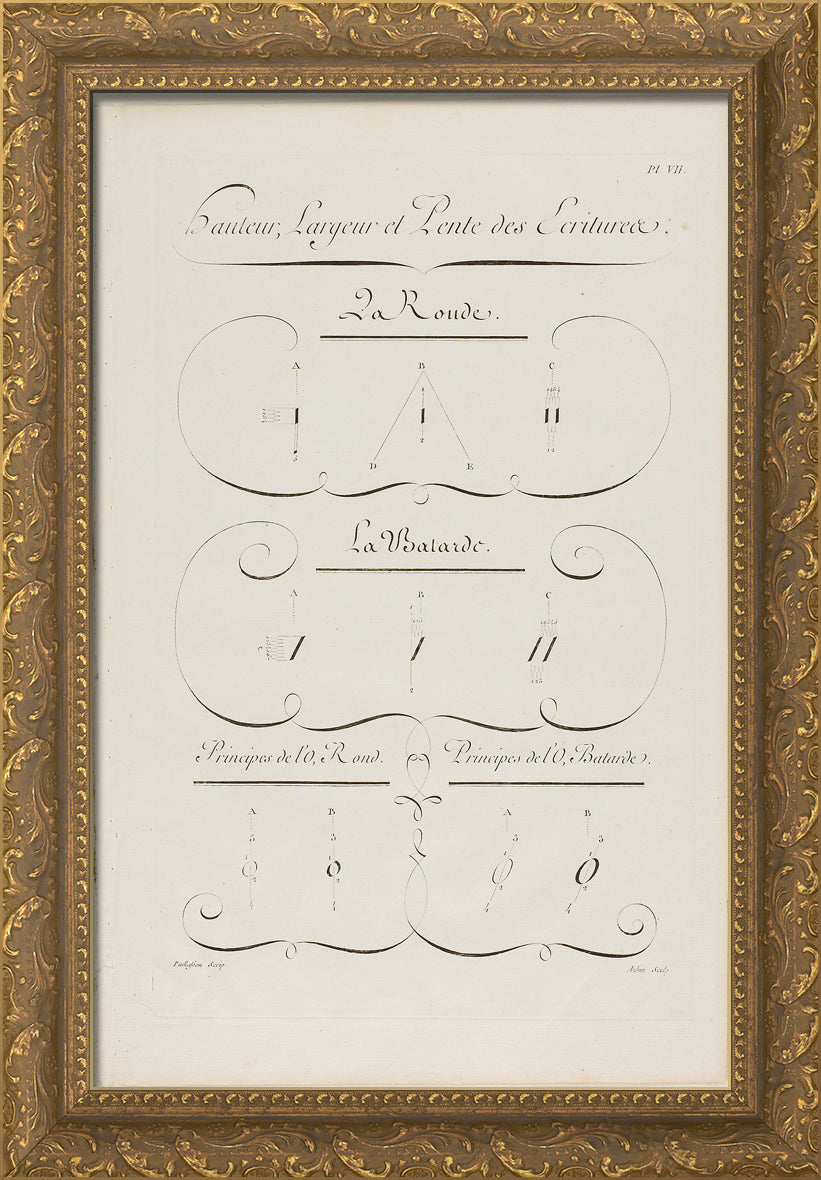 Pl VII.
Hauteur, Largeur et Pente des Ecritures.
La Ronde.
A B C
1
2
D E
5
12
La Batarde.
A B C
1
2
Principes de l'O, Rond. Principes de l'O, Batarde.
A B A B
3 3 3 3
1 1 1 1
2 2 2 2
4 4 4 4
Paillasson Scrip. Aubin Sculp